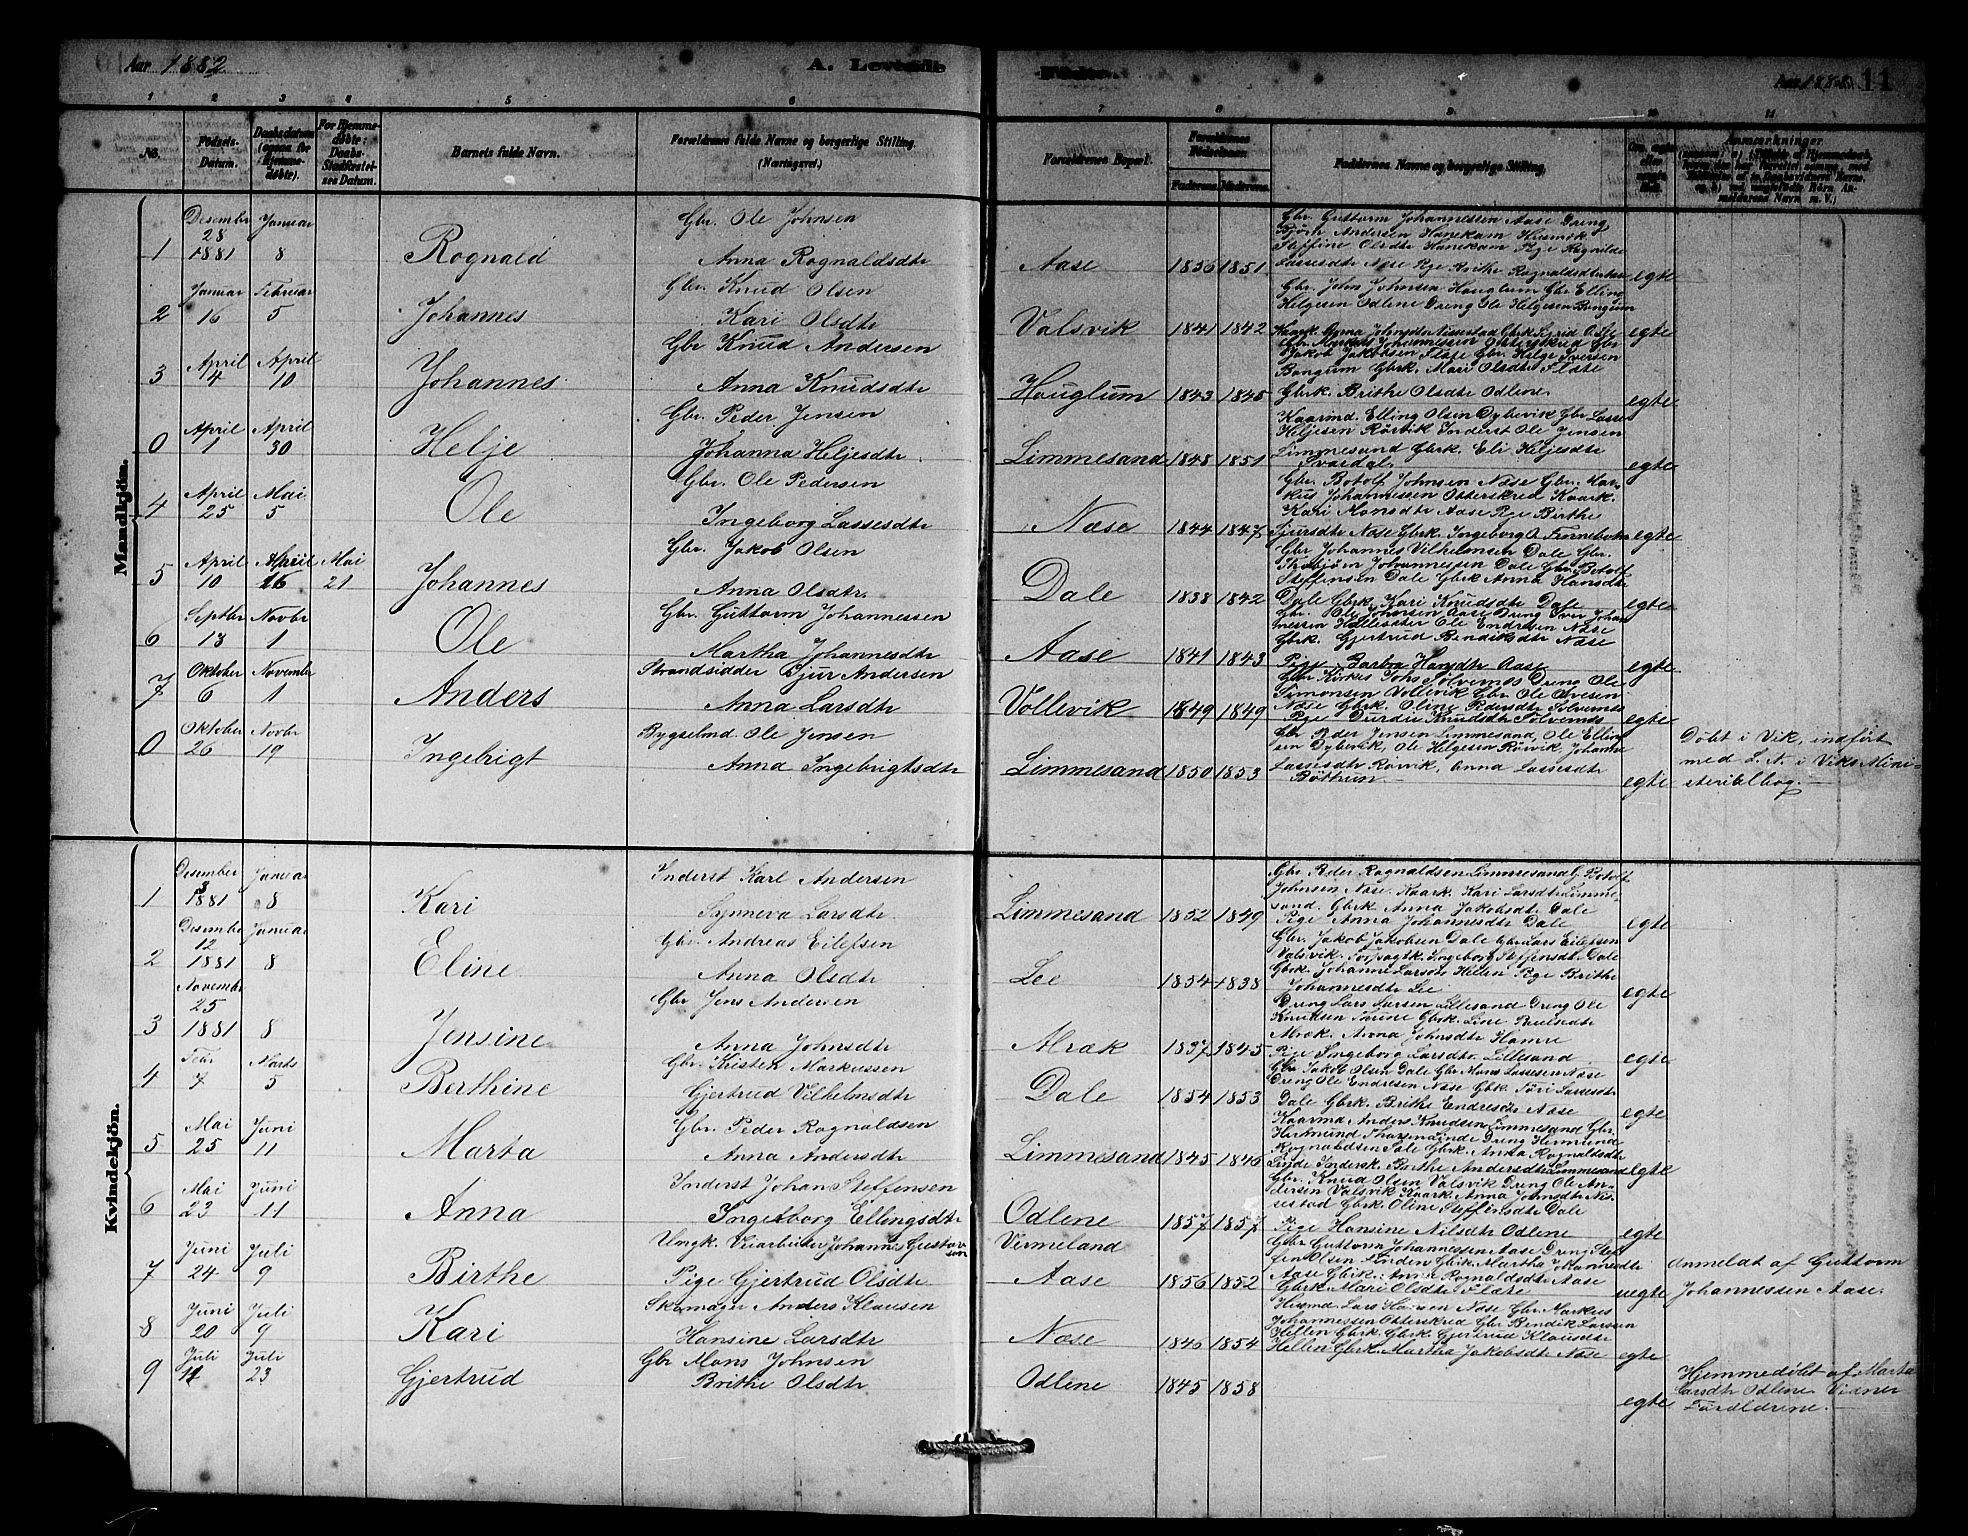 Aar 1882
A. Levende
Fødte.
11
1 2 3 4 5 6 7 8 9 10 11
No.
Fødsels-Datum.
Daabsdatum (ogsaa for Hjemme-døbte).
For Hjemme-døbte: Daabs-Stadfæstel-ses Datum.
Barnets fulde Navn.
Forældrenes fulde Navne og borgerlige Stilling. (Næringsvei.)
Forældrenes Bopæl.
Forældrenes Fødselsaar. Faderens. Moderens.
Faddernes Navne og borgerlige Stilling.
Anmærkninger
Mandkjøn.
1 Desember 28 1881 Januar 8 Rognald Gbr. Ole Johnsen
Anna Rognaldsdtr Aase 1856 1851 egte
Gbr. Guttorm Johannessen Aase Dreng
Bjørn Andersen Hanekam Husmsk
Steffine Olsdtr Hanekam Pige Ragnilde
Lassesdtr Næse Pge Brithe Rognaldsdtr Aase
2 Januar 16 Februar 5 Johannes Gbr. Knud Olsen
Kari Olsdtr Valsvik 1841 1842 egte
Gbr. John Johnsen Hauglum Gbr Elling
Helgesen Odlene Dreng Ole Helgesen Bongum
3 April 4 April 10 Johannes Gbr Knud Andersen
Anna Knudsdtr Houglum 1843 1845 egte
Gbr. Markus Johannessen Otterskred Gbr
Jakob Jakobsen Flate Gbr. Helge Iversen
Bongum Gbrk. Mari Olsdtr Flate
Gbrk. Brithe Olsdtr Odlene
0 April 1 April 30 Helje Gbr. Peder Jensen
Johanna Heljesdtr Limmesand 1848 1851 egte
Kaarmd Elling Olsen Dybevik Gbr Lasse
Heljesen Rørvik Inderst Ole Jensen
Limmesand Gbrk. Eli Heljesdtr
Svardal.
4 April 25 Mai 5 Ole Gbr. Ole Pedersen
Ingeborg Lassesdtr Næse 1844 1847 egte
Gbr. Botolf Johnsen Næse Gbr. Mar-
kus Johannessen Otterskred Kaark.
Kari Monsdtr Aase Pge Birthe
Sjursdtr Næse Gbrk. Ingeborg O Finnebotn
5 April 10 April 16 Mai 21 Johannes Gbr. Jakob Olsen
Anna Olsdtr. Dale 1838 1842 egte
Gbr Johannes Vilhelmsen Dale Gbr.
Thorbjørn Johannessen Dale Gbr. Botolf
Steffensen Dale Gbrk Anna Hansdtr
Dale Gbrk. Kari Knudsdtr Dale
6 Septbr 13 Novbr 1 Ole Gbr. Guttorm Johannessen
Martha Johannesdtr Aase 1841 1843 egte
Gbr. Ole Johnsen Aase Dreng Iver Johan
nessen Hellesæter Ole Endresen Næse
Gbrk. Gjertrud Bendiksdtr Næse
Pige Barbra Hansdtr Aase
7 Oktober 6 November 1 Anders Strandsidder Sjur Andersen
Anna Larsdtr Vollevik 1849 1849 egte
Simonsen Vollevik Gbr Ole Olvesen
Næse Gbrk. Oline Pedersdtr Sølvernes
Pige Durdei Knudsdtr Sølvernes
0 Oktober 26 Novbr 19 Ingebrigt Bygselmd. Ole Jensen
Anna Ingebrigtsdtr Limmesand 1850 1853 egte
Gbr Peder Jensen Limmesand, Ole Elling
sen Dybevik, Ole Helgesen Rørvik, Johanne
Lassesdtr Rørvik, Anna Lassesdtr
Bøttun
Døbt i Vik, indført
med L. N. i Viks Mini-
sterialbog.
Kvindekjøn.
1 Desember 3 1881 Januar 8 Kari Inderst Karl Andersen
Synneva Larsdtr. Limmesand 1852 1849 egte
Gbr Peder Rognaldsen Limmesand G. Botolf
Johnsen Næse. Kaark. Kari Larsdtr Limme-
sand. Gbrk Anna Jakobsdtr Dale
Pige Anna Johannesdtr Dale
2 Desember 12 1881 Januar 8 Eline Gbr. Andreas Eilefsen
Anna Olsdtr Lee 1854 1838 egte
Gbr. Jakob Jakobsen Dale Gbr Lars Eilefsen
Valsvik. Ingeborg Steffensdtr Dale
Gbrk. Johanne Larsdtr Hellen Pige Brithe
Johannesdtr Lee
3 November 25 1881 8 Jensine Gbr Jens Andersen
Anna Johnsdtr Alræk 1837 1845 egte
Dreng Lars Larsen Lillesand Dreng Ole
Knudsen Gbrk. Line Paulsdtr
Alræk. Anna Johnsdtr Hamre
Pige Ingeborg Larsdtr. Lillesand
4 Febr 7 Marts 5 Berthine Gbr. Kristen Markussen
Gjertrud Vilhelmsdtr Dale 1854 1853 egte
Gbr Jakob Olsen Dale Gbr Mons Lassesen Næse
Dreng Ole Endresen Næse Gbk. Lassesdtr
Dale Gbrk. Brithe Endresdtr Næse
5 Mai 25 Juni 11 Marta Gbr. Peder Rognaldsen
Anna Andersdtr Limmesand 1845 1846 egte
Kaarmd Anders Knudsen Limmesand Gbr.
Hermund Linde Dreng Hermund
Rognaldsen Gbrk. Anna Rognaldsdtr
Linde Indersk. Birthe Andersdtr Limmesand
6 Mai 23 Juni 11 Anna Inderst Johan Steffensen
Ingeborg Ellingsdtr Odlene 1857 1857 egte
Gbr. Knud Olsen Valsvik Dreng Ole An-
dersen Valsvik Kaark. Anna Johnsdtr Nis-
sestad Gbrk. Oline Steffensdtr Dale
Pige Hansine Nilsdtr Odlene
7 Juni 24 Juli 9 Birthe Ungk. Veiarbeider Johannes Gustavsson Vermeland
Pige Gjertrud Olsdtr Aase 1856 1852 uegte
Gbr Guttorm Johannessen Aase Dreng Stef
fen Olsen Finden Gbrk. Martha Johannesdtr
Aase Gbrk. Anna Rognaldsdtr Aase
Gbrk. Mari Olsdtr Flate
Anmeldt af Guttorm
Johannessen Aase.
8 Juni 20 Juli 9 Kari Skomager Anders Klausen
Hansine Larsdtr Næse 1846 1854 egte
Husmd Lars Hansen Næse Gbr Markus
Johannessen Otterskred Gbr Bendik Larssen
Hellen Gbrk. Gbrk. Gjertrud Klausdtr
Hellen Gbrk. Martha Jakobsdtr Næse
9 Juli 14 Juli 23 Gjertrud Gbr Mons Johnsen
Brithe Olsdtr Odlene 1845 1858 egte
Hjemmedøbt af Marta
Larsdtr Odlene. Vidner
Forældrene.